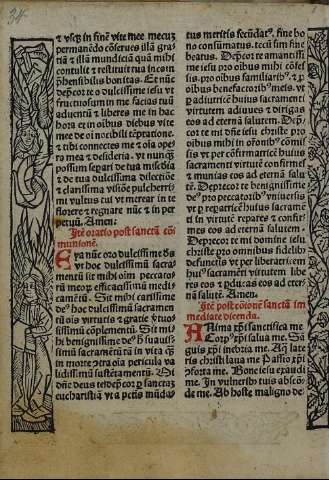 34
⁊ vsq̨ in finē vite mee mecuȝ
permanēdo cōserues illā gra-
tiā ⁊ illā mundiciā quā mihi
contulit ⁊ restituit tua incōp̄-
hensibilis bonitas. Et nūc
dep̄cor te o dulcissime iesu vt
fructuosum in me facias tuū
aduentū ⁊ liberes me in hac
hora ⁊ in oībus diebus vite
mee de oī nocibili tēptatione
⁊ tibi connectes me ⁊ oīa ope-
ra mea ⁊ desideria. vt nunq̄
possum separi de tua misc̄dia
⁊ de tua dulcissima dilectiōe
⁊ clarissima visiōe pulcherri-
mi vultus tui vt merear in te
florere ⁊ regnare nūc ⁊ in per-
petuū. Amen.
Itē oratio post sanctā cō-
munionē.
Eya nūc oro dulcissime dn̄s
vt hoc dulcissimū sacra-
mentū sit mihi oīm peccato-
rū meoꝝ efficacissimū medi-
camētū. Sit mihi carissime
de⁹ hoc dulcissimū sacramen-
tū oīs virtutis ⁊ gratie ⁊ tuo-
tissimū cōplementū. Sit mi-
hi benignissime de⁹ h̄ suauis-
simū sacramētū tā in vita q̄
in morte ꝯtra oīa pericula va-
lidissimū sustētamentū. Di
dn̄e deus te dep̄cor ꝑ sanctaȝ
eucharistiā vt a petis mūdas
tuis meritis fecūdat⁹. fine bo-
no consūmatus. tecū sim sine
beatus. Dep̄cor te o amantis-
sime iesu pro oībus mihi cōfes-
sis. pro oībus familiarib⁹. ⁊ ꝓ
oībus benefactorib⁹ meis. vt
per adiutoriē huius sacramenti
virtutem adiuues ⁊ dirigas
eos ad eternā salutem. Dep̄-
cor te mi dn̄e iesu christe pro
oībus mihi in orōnib⁹ cōmis-
sis vt per cōfirmatricē huius
sacramenti virtutē confirmes
⁊ munias eos ad eternā salu-
tē. Dep̄cor te benignissime
de⁹ pro peccatorib⁹ vniuersis
vt ꝑ reparatricē huius sacramē-
ti virtutē repares ⁊ confir-
mes eos ad eternam salutem.
Dep̄cor te mi domine iesu
christe pro omnibus fidelib⁹
defunctis vt per liberatricem
hui⁹ sacramēti virtutem libe-
res eos ⁊ ꝑducas eos ad eter-
nā salutē. Amen.
Itē post cōione sanctā im-
mediate dicenda.
Anima xp̄i sanctifica me
Corp⁹ xp̄i salua me. Sā-
guis xp̄i inebria me. Aq̄ late-
ris christi laua me Passio xp̄i
ꝯforta me. Bone iesu exaudi
me. In vulnerib⁹ tuis abscō-
de me. Ab hoste maligno de